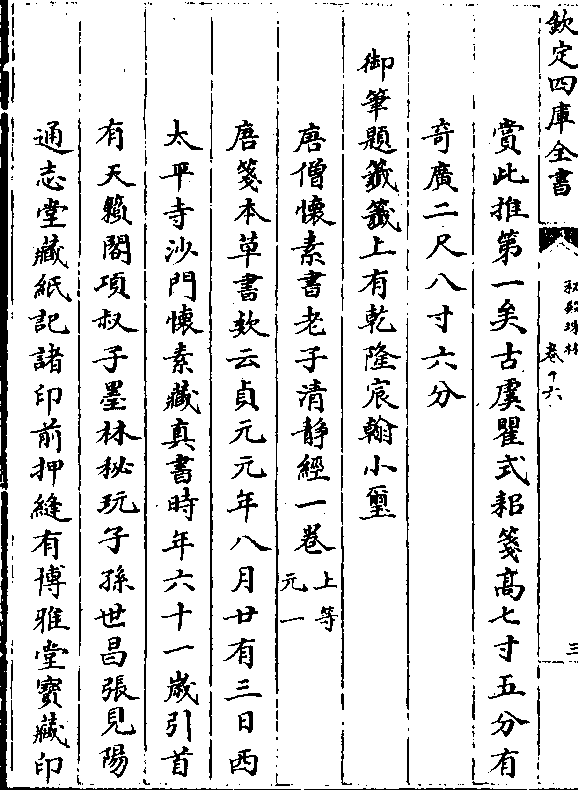 欽定四庫全書
秘殿珠林
卷十六
三
賞此推第一矣古虞瞿式耜箋高七寸五分有
奇廣二尺八寸六分
御筆題籤籤上有乾隆宸翰小璽
唐僧懷素書老子清靜經一卷上等元一
唐箋本草書款云貞元元年八月廿有三日西
太平寺沙門懷素藏真書時年六十一歲引首
有天籟閣項叔子墨林秘玩子孫世昌張見陽
通志堂藏紙記諸印前押縫有博雅堂寶藏印